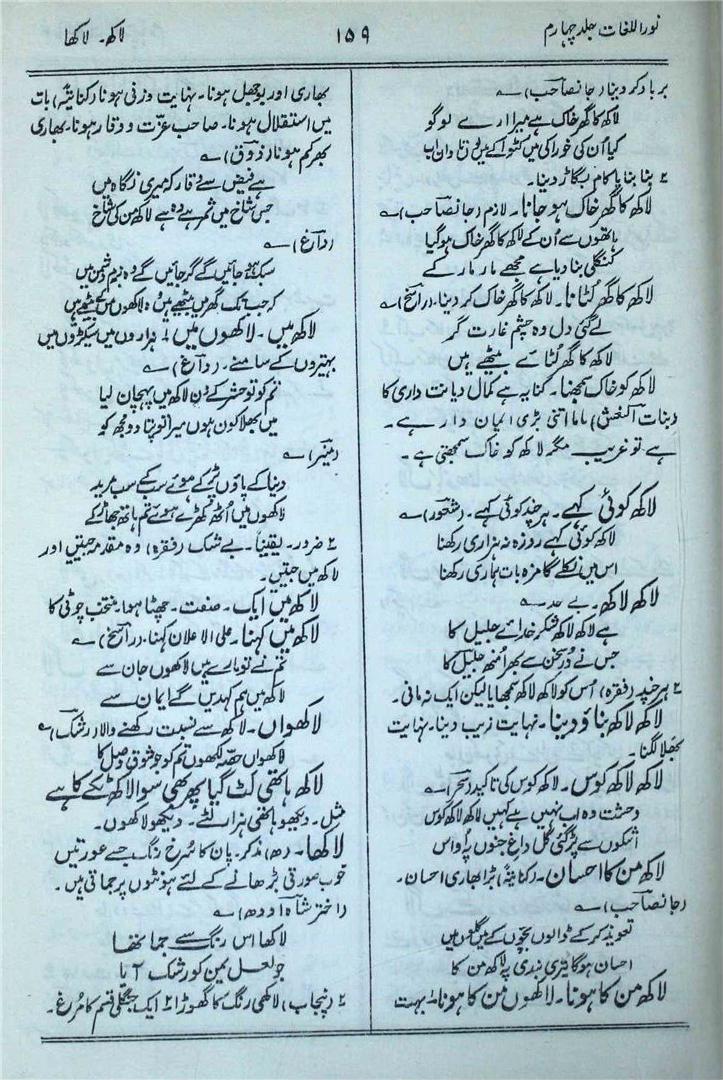 نوراللغات جلد چہارم
۱۵۹
لاکھ۔ لاکھا
برباد کردینا (جانصاحب) ؎
لاکھ کا گھر خاک ہے میرا ارے لوگو
کیا اُن کی خوراکی میں
۲ بنا بنایا کام بگاڑ دینا۔
لاکھ کا گھر خاک ہو جانا۔ لازم (جانصاحب) ؎
ہاتھوں سے اُن کے لاکھ کا گھر خاک ہوگیا
کنگلی بنا دیا ہے مجھے مار مار کے
لاکھ کا گھر لٹانا۔ لاکھ کا گھر خاک کردینا۔ (راسخ) ؎
لے گئی دل وہ چشم غارت گر
لاکھ کا گھر لٹا سے بیٹھے ہیں
لاکھ کو خاک سمجھنا۔ کنایہ ہے کمال دیانت داری کا
(بنات النعش) ماما اتنی بڑی ایمان دار ہے۔
ہے تو غریب مگر لاکھ کو خاک سمجھتی ہے۔
لاکھ کوئی کہے۔ ہرچند کوئی کہے۔ (شعور) ؎
لاکھ کوئی کہے روزہ نہ ہزاری رکھنا
اس میں نکلے گا مزہ بات ہماری رکھنا
لاکھ لاکھ۔ بے حد۔ ؎
ہے لاکھ لاکھ شکر خدائے جلیل کا
جس نے دُرِ سخن سے بھرا منھ جلیل کا
۲ ہرچند (فقرہ) اُس کو لاکھ لاکھ سمجھایا لیکن ایک نہ مانی۔
لاکھ لاکھ بناؤ دینا۔ نہایت زیب دینا۔ نہایت
بھلا لگنا۔
لاکھ لاکھ کوس۔ لاکھ کوس کی تاکید (سحر) ؎
وحشت وہ اب نہیں ہے کہیں لاکھ لاکھ کوس
اشکوں سے پڑ گئی گل داغ جنوں پہ اوس
لاکھ من کا احسان۔ (کنایۃً) بڑا بھاری احسان۔
(جانصاحب) ؎
تعویذ کرکے ڈالوں بچوں کے میں گلوں میں
احسان ہوگا تیری نبدی پہ لاکھ من کا
لاکھ من کا ہونا۔ لاکھوں من کا ہونا۔ ۱ بہت
بھاری اور بوجھل ہونا۔ نہایت وزنی ہونا (کنایۃً) بات
میں استقلال ہونا۔ صاحب عزت و وقار ہونا۔ بھاری
بھرکم ہونا (ذوق) ؎
ہے فیض سے وقار کہ میری نگاہ میں
جس شاخ میں ثمر ہے وہ ہے لاکھ من کی شاخ
(داغ) ؎
سبک ہو جائیں گے گر جائیں گے وہ بزم دشمن میں
کہ جب تک گھر میں بیٹھے ہیں وہ لاکھوں من کے بیٹھے ہیں
لاکھ میں۔ لاکھوں میں ۱ ہزاروں میں سیکڑوں میں
بہتیروں کے سامنے۔ (داغ) ؎
تم کو تو حشر کے دن لاکھ میں پہچان لیا
میں بھلا کون ہوں میرا تو پتا دو مجھ کو
(منیر) ؎
دنیا کے پاؤں پڑ کے ہوئے سب کے سب مرید
لاکھوں میں اُٹھ کھڑے ہوئے تم ہاتھ جھاڑ کے
۲ ضرور۔ یقیناً۔ بے شک (فقرہ) وہ مقدمہ جیتیں اور
لاکھ میں جیتیں۔
لاکھ میں ایک۔ صفت۔ چھٹا ہوا۔ منتخب چوٹی کا
لاکھ میں کہنا۔ علی الاعلان کہنا۔ (راسخ) ؎
تم نے تو مارے ہیں لاکھوں جان سے
لاکھ میں ہم کہدیں گے ایمان سے
لاکھواں۔ لاکھ سے نسبت رکھنے والا (رشک) ؎
لاکھواں حصّہ لکھوں تم کو جو شوق وصل کا
لاکھ ہاتھی لٹ گیا پھر بھی سوا لاکھ ٹکے کا ہے
مثل۔ دیکھو ہاتھی ہزار لٹے۔ دیکھو لاکھوں۔
لاکھا۔ (ھ) مذکر۔ پان کا سُرخ رنگ جسے عورتیں
خوب صورتی بڑھانے کے لئے ہونٹوں پر جماتی ہیں۔
(اختر شاہ اودھ) ؎
لاکھا اس رنگ سے جما تھا
جو لعل یمن کو رشک آیا
۲ (پنجاب) لاکھی رنگ کا گھوڑا ۳ ایک جنگلی قسم کا مُرغ۔